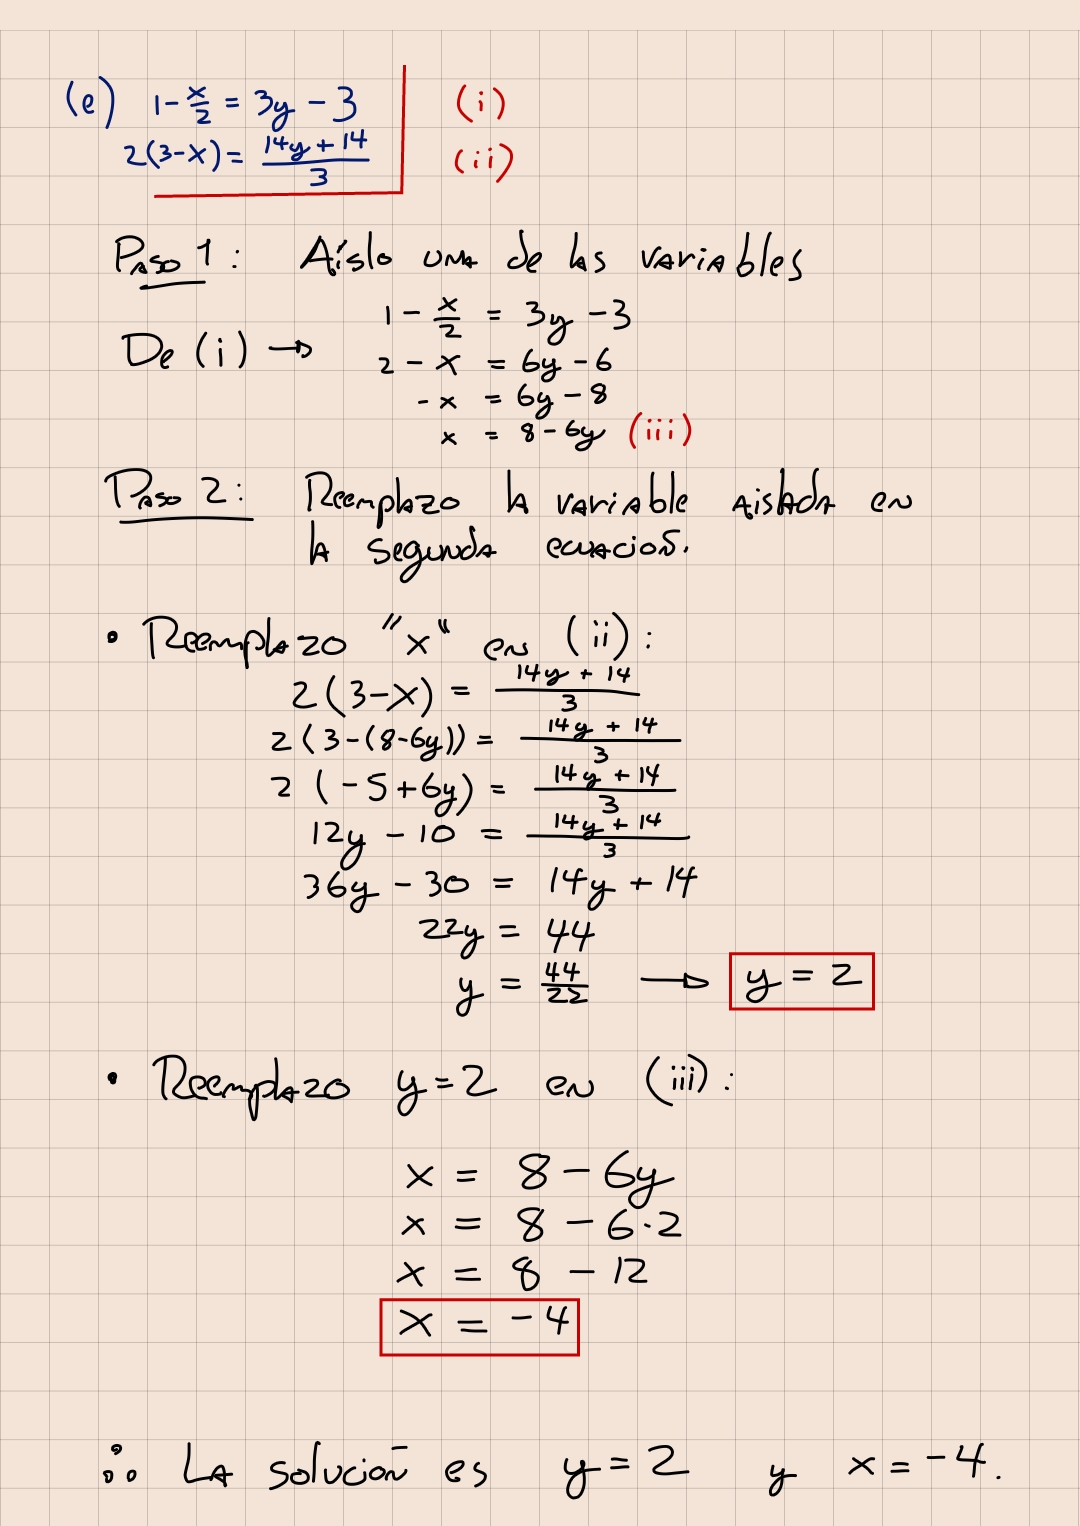 (e) 1 - x/2 = 3y - 3 (i)
2(3-x) = (14y + 14)/3 (ii)
Paso 1: Aíslo una de las variables
De (i) → 1 - x/2 = 3y - 3
2 - x = 6y - 6
-x = 6y - 8
x = 8 - 6y (iii)
Paso 2: Reemplazo la variable aislada en
la segunda ecuación.
• Reemplazo "x" en (ii):
2(3-x) = (14y + 14)/3
2(3-(8-6y)) = (14y + 14)/3
2(-5+6y) = (14y + 14)/3
12y - 10 = (14y + 14)/3
36y - 30 = 14y + 14
22y = 44
y = 44/22 → y = 2
• Reemplazo y=2 en (iii):
x = 8 - 6y
x = 8 - 6·2
x = 8 - 12
x = -4
∴ La solución es y = 2 y x = -4.